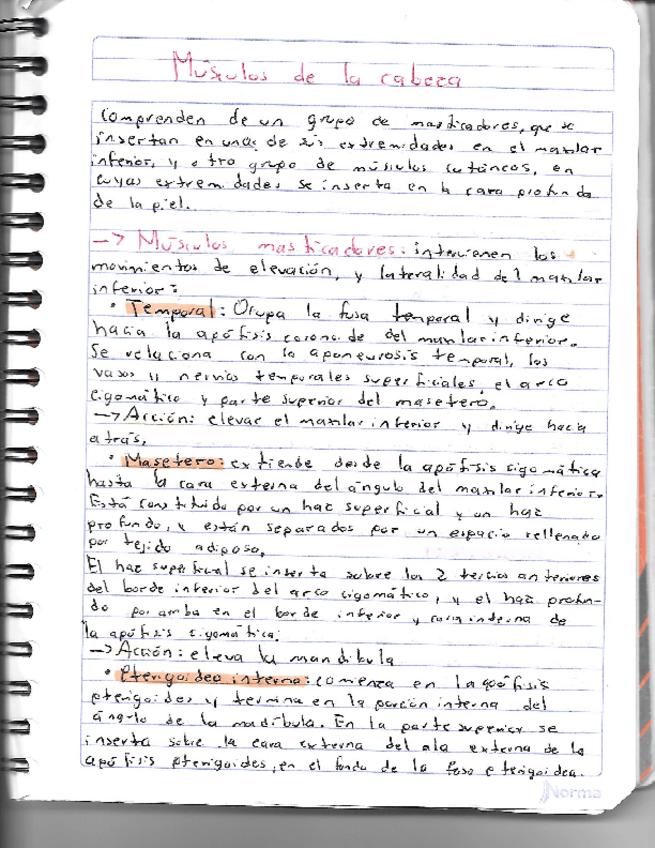 Músculos de la cabeza
Comprenden de un grupo de masticadores, que se
insertan en una de sus extremidades en el maxilar
inferior, y otro grupo de músculos cutáneos, en
cuyas extremidades se inserta en la cara profunda
de la piel.
-> Músculos masticadores: intervienen los
movimientos de elevación, y lateralidad del maxilar
inferior:
• Temporal: Ocupa la fosa temporal y dirige
hacia la apófisis coronoide del maxilar inferior.
Se relaciona con la aponeurosis temporal, los
vasos y nervios temporales superficiales, el arco
cigomático y parte superior del masetero.
-> Acción: elevar el maxilar inferior y dirige hacia
atrás.
• Masetero: extiende desde la apófisis cigomática
hasta la cara externa del ángulo del maxilar inferior.
Está constituido por un haz superficial y un haz
profundo, y están separados por un espacio rellenado
por tejido adiposo.
El haz superficial se inserta sobre los 2 tercios anteriores
del borde inferior del arco cigomático, y el haz profun-
do por arriba en el borde inferior y cara interna de
la apófisis cigomática.
-> Acción: eleva la mandibula
• Pterigoideo interno: comienza en la apófisis
pterigoides y termina en la porción interna del
ángulo de la madíbula. En la parte superior se
inserta sobre la cara externa del ala externa de la
apófisis pterigoides, en el fondo de la fosa pterigoidea.
Norma